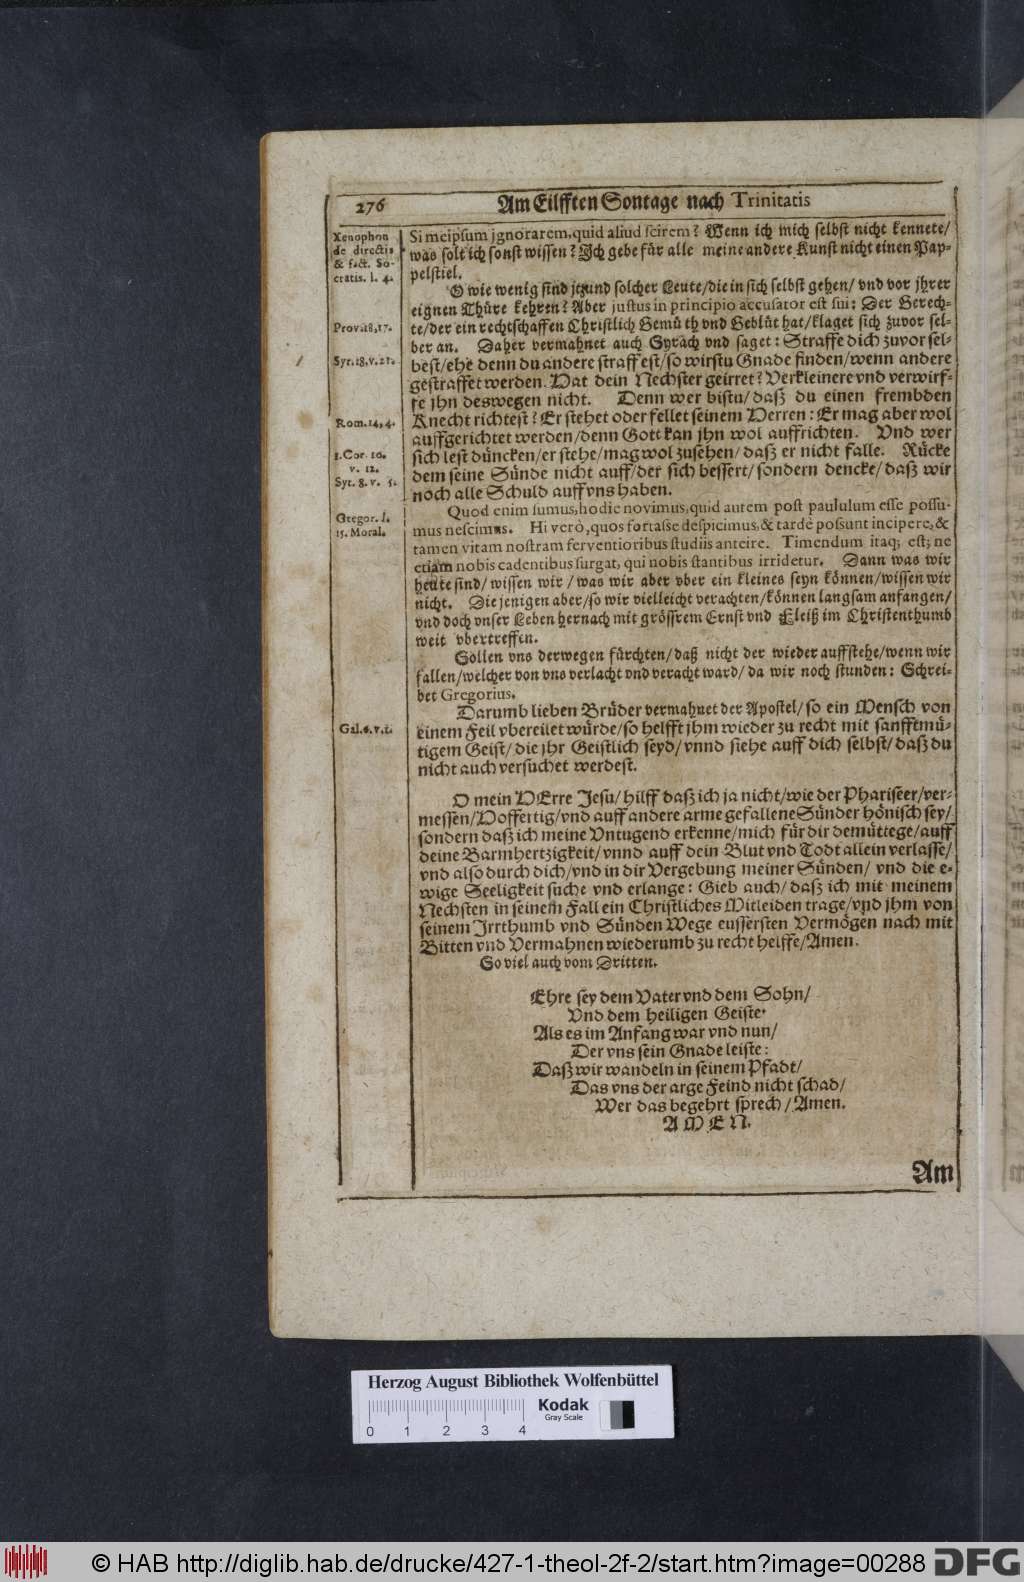 276
Am Eilfften Sontage nach Trinitatis
Xenophon
de directis
& fact. So-
cratis. l. 4.
Prov. 18, 17.
Syr. 18. v. 21.
Rom. 14, 4.
1. Cor. 10.
v. 12.
Syr. 8. v. 5.
Gregor. l.
15. Moral.
Gal. 6. v. 1.
Si meipsum jgnorarem, quid aliud scirem? Wenn ich mich selbst nicht kennete/
was solt ich sonst wissen? Ich gebe für alle meine andere Kunst nicht einen Pap-
pelstiel.
O wie wenig sind jtzund solcher Leute/ die in sich selbst gehen/ vnd vor jhrer
eignen Thüre kehren? Aber justus in principio accusator est sui: Der Gerech-
te/ der ein rechtschaffen Christlich Gemüth vnd Geblüt hat/ klaget sich zuvor sel-
ber an. Daher vermahnet auch Syrach vnd saget: Straffe dich zuvor sel-
best/ ehe denn du andere straffest/ so wirstu Gnade finden/ wenn andere
gestraffet werden. Hat dein Nechster geirret? Verkleinere vnd verwirf-
fe jhn deswegen nicht. Denn wer bistu/ daß du einen frembden
Knecht richtest? Er stehet oder fellet seinem Herren: Er mag aber wol
auffgerichtet werden/ denn Gott kan jhn wol auffrichten. Vnd wer
sich lest düncken/ er stehe/ mag wol zusehen/ daß er nicht falle. Rücke
dem seine Sünde nicht auff/ der sich bessert/ sondern dencke/ daß wir
noch alle Schuld auff vns haben.
Quod enim sumus, hodie novimus, quid autem post paululum esse possu-
mus nescimus. Hi verò, quos fortasse despicimus, & tardè possunt incipere, &
tamen vitam nostram ferventioribus studiis anteire. Timendum itaq; est; ne
etiam nobis cadentibus surgat, qui nobis stantibus irridetur. Dann was wir
heute sind/ wissen wir/ was wir aber vber ein kleines seyn können/ wissen wir
nicht. Die jenigen aber/ so wir vielleicht verachten/ können langsam anfangen/
vnd doch vnser Leben hernach mit grössrem Ernst vnd Fleiß im Christenthumb
weit vbertreffen.
Sollen vns derwegen fürchten/ daß nicht der wieder auffstehe/ wenn wir
fallen/ welcher von vns verlacht vnd veracht ward/ da wir noch stunden: Schrei-
bet Gregorius.
Darumb lieben Brüder vermahnet der Apostel/ so ein Mensch von
einem Feil vbereilet würde/ so helfft jhm wieder zu recht mit sanfftmü-
tigem Geist/ die jhr Geistlich seyd/ vnnd siehe auff dich selbst/ daß du
nicht auch versuchet werdest.
O mein HErre Jesu/ hilff daß ich ja nicht/ wie der Phariseer/ ver-
messen/ Hoffertig/ vnd auff andere arme gefallene Sünder hönisch sey/
sondern daß ich meine Vntugend erkenne/ mich für dir demütiege/ auff
deine Barmhertzigkeit/ vnnd auff dein Blut vnd Todt allein verlasse/
vnd also durch dich/ vnd in dir Vergebung meiner Sünden/ vnd die e-
wige Seeligkeit suche vnd erlange: Gieb auch/ daß ich mit meinem
Nechsten in seinem Fall ein Christliches Mitleiden trage/ vnd jhm von
seinem Irrthumb vnd Sünden Wege eussersten Vermögen nach mit
Bitten vnd Vermahnen wiederumb zu recht helffe/ Amen.
So viel auch vom Dritten.
Ehre sey dem Vater vnd dem Sohn/
Vnd dem heiligen Geiste.
Als es im Anfang war vnd nun/
Der vns sein Gnade leiste:
Daß wir wandeln in seinem Pfadt/
Das vns der arge Feind nicht schad/
Wer das begehrt sprech/ Amen.
AMEN.
Am
Herzog August Bibliothek Wolfenbüttel
0 1 2 3 4
Kodak
Gray Scale
© HAB http://diglib.hab.de/drucke/427-1-theol-2f-2/start.htm?image=00288
DFG